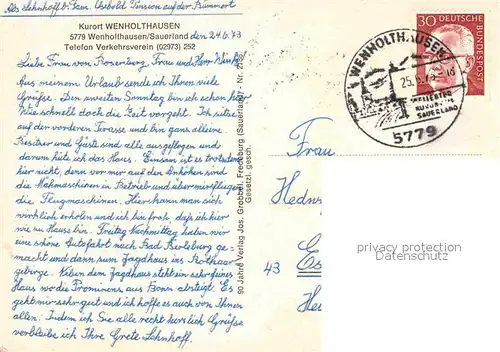 Als Lehnhoff b/Fam. Pension auf der Trümmert
Kurort WENHOLTHAUSEN
5779 Wenholthausen/Sauerland den 24.6.73
Telefon Verkehrsverein (02973) 252
Liebe Frau von Rosenberg, Frau und Herr
Aus meinem Urlaub sende ich Ihnen viele
Grüße. Den zweiten Sonntag bin ich schon hier
Wie schnell doch die Zeit vergeht. Ich sitze
auf der vorderen Terasse und bin ganz alleine
Besitzer und Gäste sind alle ausgeflogen und
darum hüte ich das Haus. Einsam ist es trotzdem
hier nicht, denn vor mir auf den Anhöhen sind
die Mähmaschinen in Betrieb und über mir fliegen
die Flugmaschinen. Hier kann man sich
wirklich erholen und ich bin froh, daß ich hier
wie zu Hause bin. Freitag Nachmittag haben wir
eine schöne Autofahrt nach Bad Berleburg ge-
macht und dann zum Jagdhaus ins Rothaar-
gebirge. Neben dem Jagdhaus steht ein sehr feines
Haus wo die Prominenz aus Bonn absteigt. Es
geht mir sehr gut und ich hoffe es auch von Ihnen
allen. Indem ich Sie alle recht herzlich Grüße
verbleibe ich Ihre Grete Lehnhoff.
90 Jahre Verlag Jos. Grobbel, Fredeburg (Sauerland) · Nr.
Gesetzl. gesch.
30 DEUTSCHE BUNDESPOST
WENHOLTHAUSEN
25.6.73
KURORT
SAUERLAND
5779
Frau
Hedw
43 Es
He
privacy protection